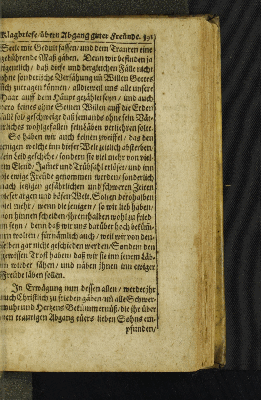 Klagbriefe/übern Abgang guter Freunde. 391
Seele mit Gedult fassen/und dem Trauren eine
gebührende Maß gäben. Denn wir befinden ja
eigentlich / daß diese und dergleichen Fälle nicht
ohne sonderliche Versähung uñ Willen Gottes
sich zutragen können / alldieweil uns alle unsere
Haar auff dem Häupt gezählet seyn / und auch
dero keines ohne Seinen Willen auff die Erden
falle/solgeschweige daß jemands ohne sein Vä-
terliches wohlgefallen sein Läben verliehren solte.
So haben wir auch keinen zweiffel / das den
jenigen welche inn dieser Welt zeitlich absterben/
kein Leid geschehe/sondern sie viel mehr von viel-
em Elend/Jamer und Trübsahl erlöset/und inn
die ewige Freude genommen werden/sonderlich
nach jetzigen gefährlichen und schweren Zeiten
dieser argen und bösen Welt. Sollen derohalben
viel mehr / wenn die jenigen / so wir lieb haben/
von hinnen scheiden/ihrenthalben wohl zu fried-
en seyn / denn daß wir uns darüber hoch beküm-
mern wolten / fürnämlich auch / weil wir von den-
selben gar nicht geschieden werden/Sondern den
gewissen Trost haben/daß wir sie inn jenem Lä-
ben wieder sähen / und näben ihnen inn ewiger
Freude läben sollen.
In Erwägung nun dessen allen / werdet ihr
auch Christlich zu frieden gäben/uñ alle Schwer-
muht und Hertzens Bekümernüß/die ihr über
den traurigen Abgang eüers lieben Sohns em-
pfunden/